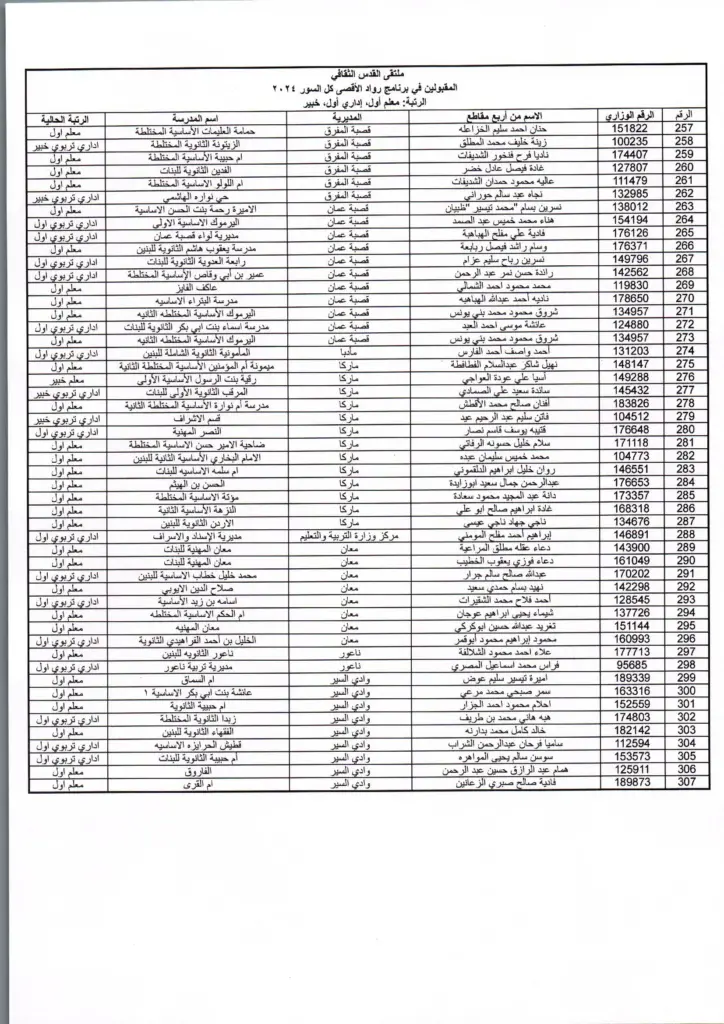 ملتقى القدس الثقافي
المقبولين في برنامج رواد الأقصى كل السور ٢٠٢٤
الرتبة: معلم أول، إداري أول، خبير
الرقم الرقم الوزاري الاسم من أربع مقاطع المديرية اسم المدرسة الرتبة الحالية
257 151822 حنان احمد سليم الخزاعله قصبة المفرق حمامة العليمات الأساسية المختلطة معلم اول
258 100235 زينة خليف محمد المطلق قصبة المفرق الزيتونة الثانوية المختلطة اداري تربوي خبير
259 174407 ناديا فرح فنخور الشديفات قصبة المفرق ام حبيبة الأساسية المختلطة معلم اول
260 127807 غادة فيصل عادل خضر قصبة المفرق الفدين الثانوية للبنات معلم اول
261 111479 عاليه محمود حمدان الشديفات قصبة المفرق ام اللولو الاساسية المختلطة معلم اول
262 132985 نجاه عبد سالم حوراني قصبة المفرق حي نواره الهاشمي اداري تربوي خبير
263 138012 نسرين بسام "محمد تيسير" ظبيان قصبة عمان الاميرة رحمة بنت الحسن الاساسية معلم اول
264 154194 هناء محمد خميس عبد الصمد قصبة عمان اليرموك الاساسية الاولى اداري تربوي اول
265 176126 فادية علي مفلح الهباهبة قصبة عمان مديرية لواء قصبة عمان اداري تربوي اول
266 176371 وسام راشد فيصل ربابعة قصبة عمان مدرسة يعقوب هاشم الثانوية للبنين معلم اول
267 149796 نسرين رباح سليم عزام قصبة عمان رابعة العدوية الثانوية للبنات اداري تربوي اول
268 142562 رائدة حسن نمر عبد الرحمن قصبة عمان عمير بن أبي وقاص الأساسية المختلطة اداري تربوي اول
269 119830 محمد محمود احمد الشمالي قصبة عمان عاكف الفايز معلم اول
270 178650 ناديه أحمد عبدالله الهباهبه قصبة عمان مدرسة البتراء الاساسيه معلم اول
271 134957 شروق محمود محمد بني يونس قصبة عمان اليرموك الأساسية المختلطه الثانيه معلم اول
272 124880 عائشة موسى احمد العبد قصبة عمان مدرسة اسماء بنت ابي بكر الثانوية للبنات اداري تربوي اول
273 134957 شروق محمود محمد بني يونس قصبة عمان اليرموك الأساسية المختلطه الثانيه معلم اول
274 131203 أحمد واصف أحمد الفارس مادبا المأمونية الثانوية الشاملة للبنين اداري تربوي اول
275 148147 نهيل شاكر عبدالسلام القطاطشة ماركا ميمونة أم المؤمنين الأساسية المختلطة الثانية معلم اول
276 149288 آسيا علي عودة العواجي ماركا رقية بنت الرسول الأساسية الأولى معلم خبير
277 145432 سائدة سعيد علي الصمادي ماركا المرقب الثانوية الأولى للبنات اداري تربوي خبير
278 183826 أفنان صالح محمد الأقطش ماركا مدرسة أم نوارة الأساسية المختلطة الثانية معلم اول
279 104512 فاتن سليم عبد الرحيم عيد ماركا قسم الاشراف اداري تربوي خبير
280 176648 قتيبه يوسف قاسم نصار ماركا النصر المهنية اداري تربوي اول
281 171118 سلام خليل حسونه الرفاتي ماركا ضاحية الامير حسن الاساسية المختلطة معلم اول
282 104773 محمد خميس سليمان عبده ماركا الامام البخاري الأساسية الثانية للبنين معلم اول
283 146551 روان خليل ابراهيم الدلقموني ماركا ام سلمه الاساسيه للبنات معلم اول
284 176653 عبدالرحمن جمال سعيد ابوزايدة ماركا الحسن بن الهيثم معلم اول
285 173357 دانة عبد المجيد محمود سعادة ماركا مؤتة الاساسية المختلطة معلم اول
286 168318 غادة ابراهيم صالح ابو علي ماركا النزهة الأساسية الثانية معلم اول
287 134676 ناجي جهاد ناجي عيسى ماركا الاردن الثانوية للبنين معلم اول
288 146891 إبراهيم أحمد مفلح المومني مركز وزارة التربية والتعليم مديرية الإسناد والاشراف اداري تربوي اول
289 143900 دعاء عقله مطلق المراعية معان معان المهنية للبنات معلم اول
290 161049 دعاء فوزي يعقوب الخطيب معان معان المهنية للبنات معلم اول
291 170202 عبدالله صالح سالم جرار معان محمد خليل خطاب الاساسية للبنين اداري تربوي اول
292 142298 نهيد بسام حمدي سعيد معان صلاح الدين الايوبي معلم اول
293 128545 أحمد فلاح محمد الشقيرات معان اسامه بن زيد الأساسية اداري تربوي اول
294 137726 شيماء يحيى ابراهيم عوجان معان ام الحكم الاساسية المختلطه معلم اول
295 151144 تغريد عبدالله حسين ابوكركي معان معان المهنيه معلم اول
296 160993 محمود إبراهيم محمود أبوقمر معان الخليل بن أحمد الفراهيدي الثانوية اداري تربوي اول
297 177713 علاء احمد محمود الشلالفة ناعور ناعور الثانويه للبنين معلم اول
298 95685 فراس محمد اسماعيل المصري ناعور مديرية تربية ناعور اداري تربوي اول
299 189339 اميرة تيسير سليم عوض وادي السير ام السماق معلم اول
300 163316 سمر صبحي محمد مرعي وادي السير عائشة بنت ابي بكر الاساسية ١ معلم اول
301 152559 احلام محمود احمد الجزار وادي السير ام حبيبة الثانوية معلم اول
302 174803 هبه هاني محمد بن طريف وادي السير زبدا الثانوية المختلطة اداري تربوي اول
303 182142 خالد كامل محمد بدارنه وادي السير الفقهاء الثانوية للبنين معلم اول
304 112594 ساميا فرحان عبدالرحمن الشراب وادي السير قطيش الحرايزه الاساسيه اداري تربوي اول
305 153573 سوسن سالم يحيى المواهره وادي السير أم حبيبة الثانوية للبنات اداري تربوي اول
306 125911 همام عبد الرازق حسين عبد الرحمن وادي السير الفاروق معلم اول
307 189873 فادية صالح صبري الزعانين وادي السير ام القرى معلم اول